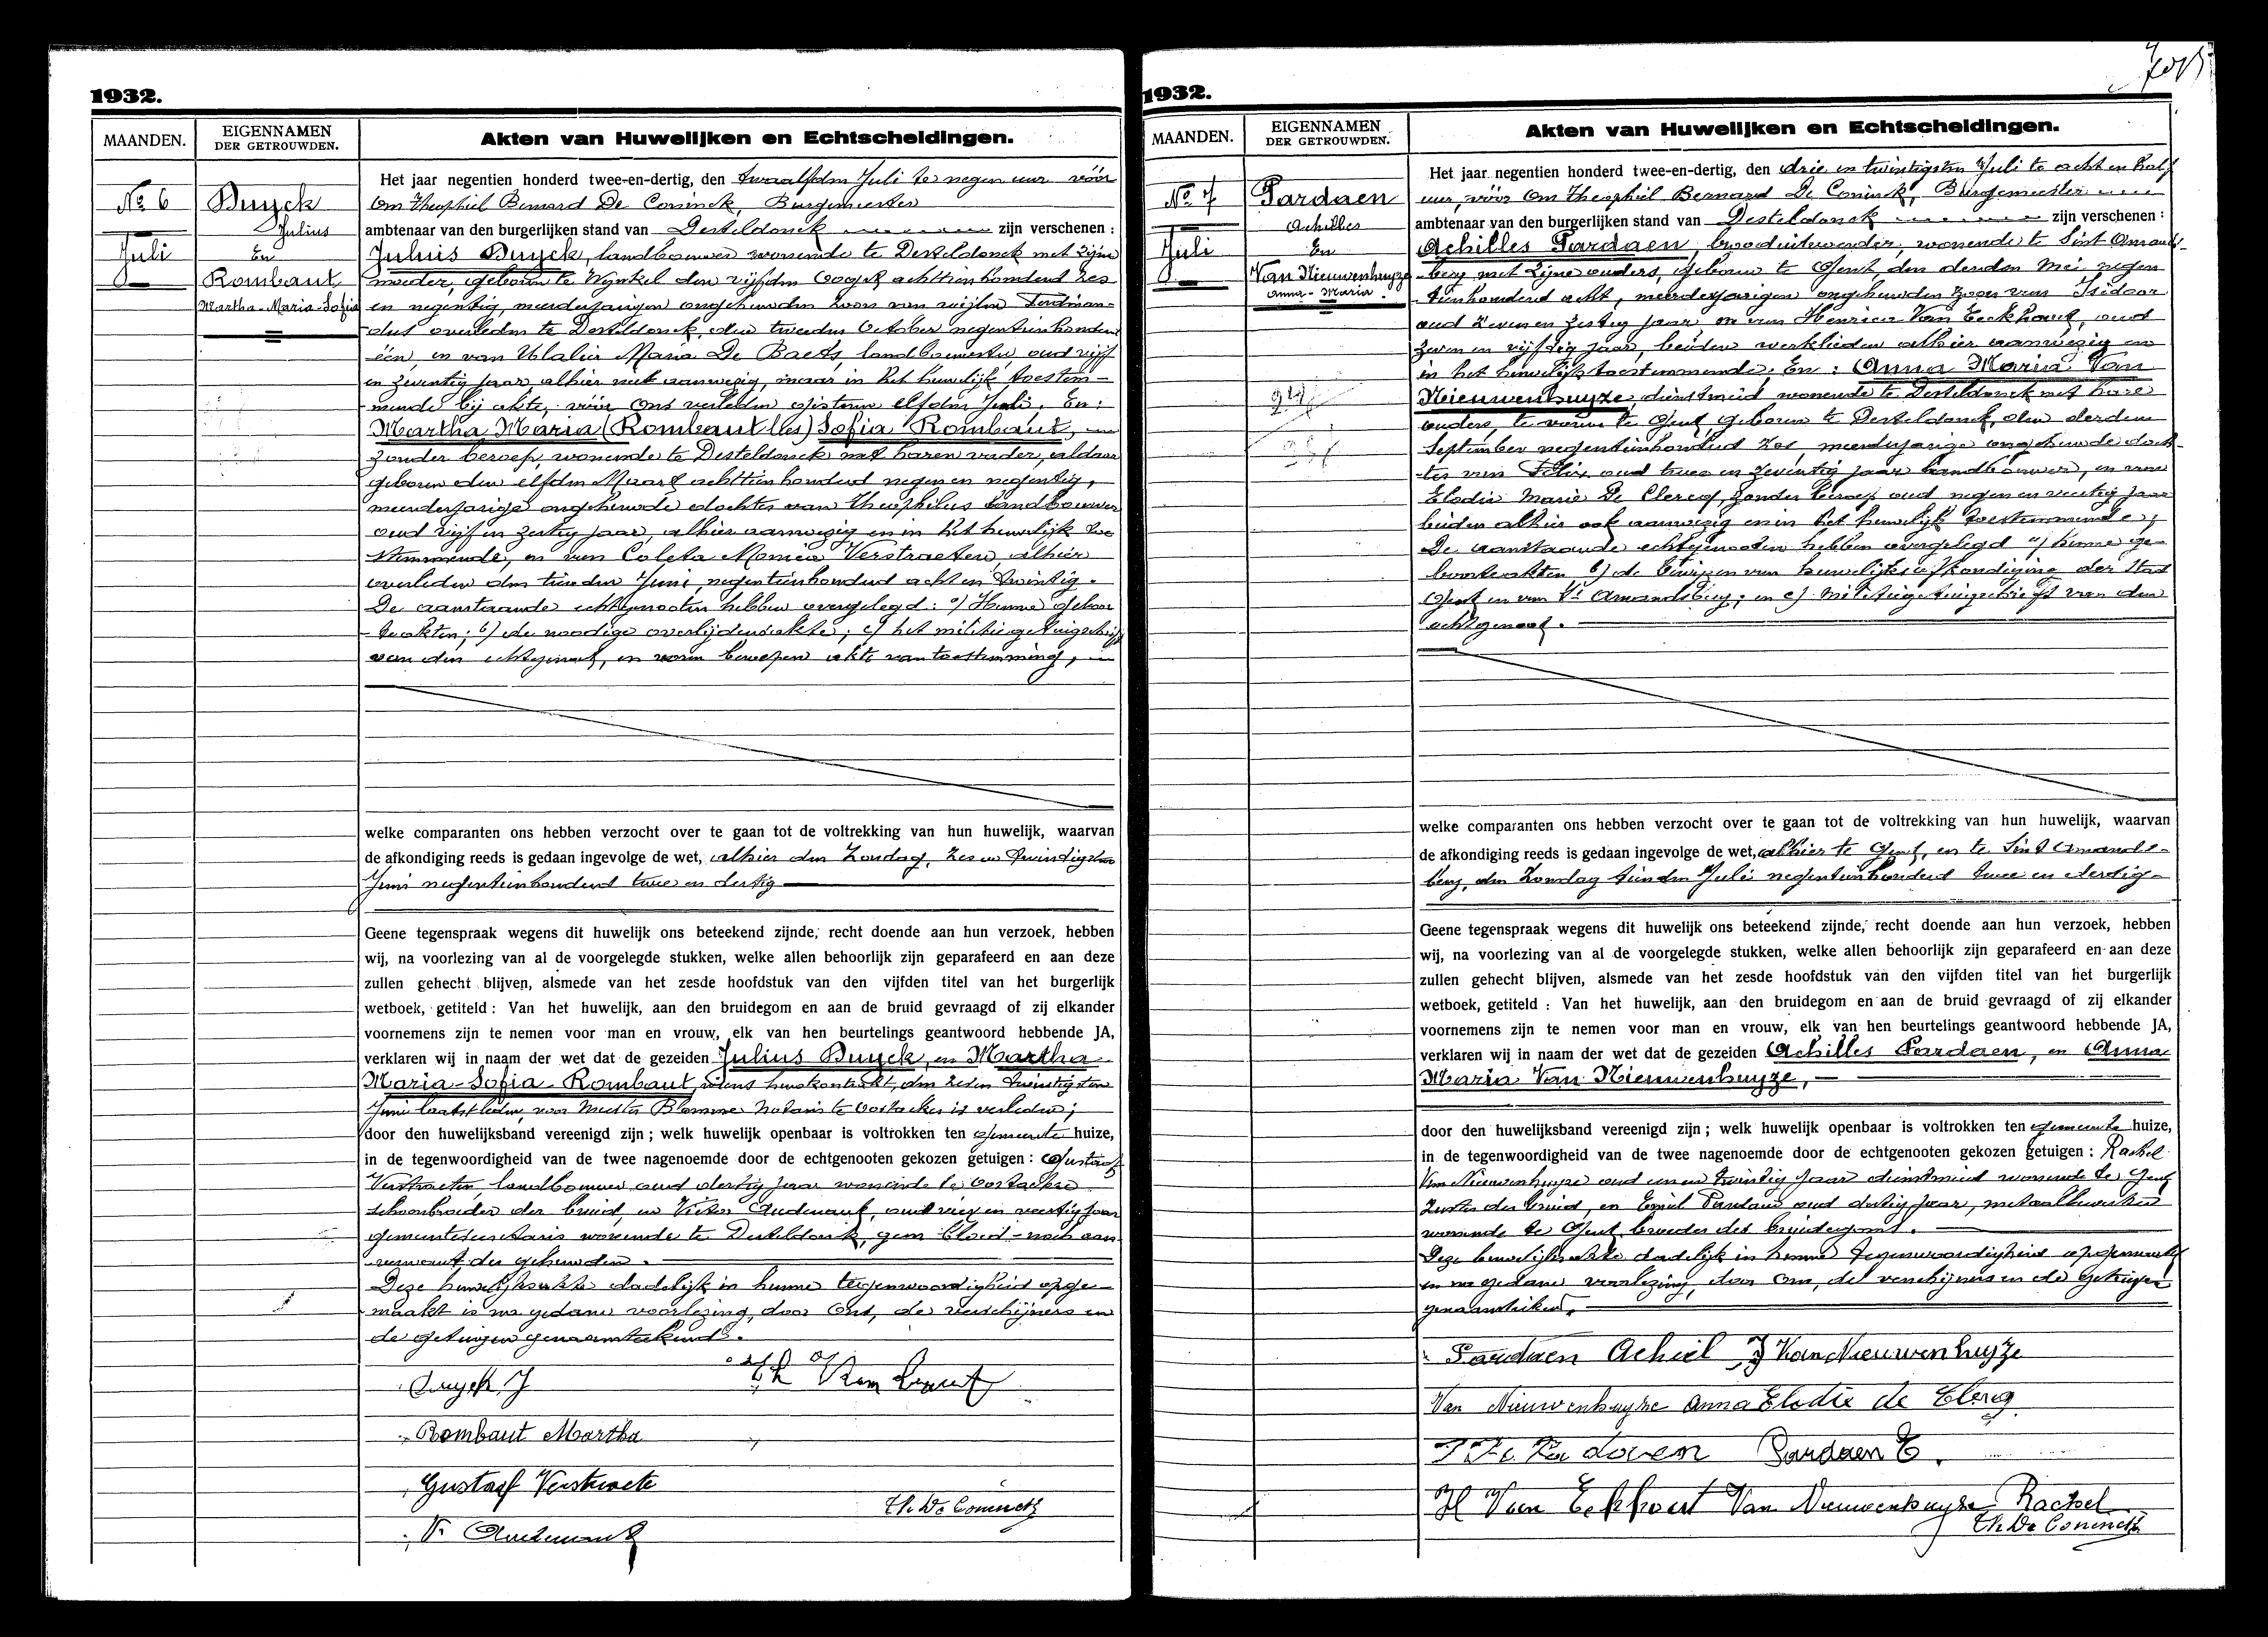 1932.
MAANDEN.
EIGENNAMEN
DER GETROUWDEN.
Akten van Huwelijken en Echtscheidingen.
No 6
Juli
Duyck
Julius
En
Rombaut
Martha-Maria-Sofia
Het jaar negentien honderd twee-en-dertig, den twaalfden Juli te negen uur vóór
Ons Theophiel Bernard De Coninck, Burgemeester
ambtenaar van den burgerlijken stand van Desteldonck zijn verschenen :
Julius Duyck, landbouwer wonende te Desteldonck met zijne
moeder, geboren te Wynkel den vijfden Oogst achttienhonderd zes
en negentig, meerderjarigen ongehuwden zoon van wijlen Ferdinan-
dus overleden te Desteldonck, den tweeden October negentienhonderd
één, en van Ulalia Maria De Baets, landbouwster, oud vijf
en zeventig jaar, alhier niet aanwezig, maar in het huwelijk toestem-
mende bij akte, vóór Ons verleden gisteren elfden Juli. En:
Martha Maria (Rombaut lles) Sofia Rombaut,
zonder beroep, wonende te Desteldonck met haren vader, aldaar
geboren den elfden Maart achttienhonderd negen en negentig,
meerderjarige ongehuwde dochter van Theophilus landbouwer
oud vijf en zestig jaar, alhier aanwezig en in het huwelijk toe
stemmende, en van Coleta Monica Verstraeten, alhier
overleden den tienden Juni, negentienhonderd acht en twintig.
De aanstaande echtgenooten hebben overgelegd: a) Hunne geboor
teakten; b) de noodige overlijdensakte; c) het militiegetuigschrift
van den echtgenoot, en voren beroepen akte van toestemming,
welke comparanten ons hebben verzocht over te gaan tot de voltrekking van hun huwelijk, waarvan
de afkondiging reeds is gedaan ingevolge de wet, alhier den Zondag, zes en twintigsten
Juni negentienhonderd twee en dertig
Geene tegenspraak wegens dit huwelijk ons beteekend zijnde, recht doende aan hun verzoek, hebben
wij, na voorlezing van al de voorgelegde stukken, welke allen behoorlijk zijn geparafeerd en aan deze
zullen gehecht blijven, alsmede van het zesde hoofdstuk van den vijfden titel van het burgerlijk
wetboek, getiteld : Van het huwelijk, aan den bruidegom en aan de bruid gevraagd of zij elkander
voornemens zijn te nemen voor man en vrouw, elk van hen beurtelings geantwoord hebbende JA,
verklaren wij in naam der wet dat de gezeiden Julius Duyck, en Martha
Maria-Sofia Rombaut, wiens huwkontrakt, den zes en twintigsten
Juni laatstleden, voor Meester Blomme Notaris te Oostacker is verleden;
door den huwelijksband vereenigd zijn ; welk huwelijk openbaar is voltrokken ten gemeente huize,
in de tegenwoordigheid van de twee nagenoemde door de echtgenooten gekozen getuigen : Gustaaf
Verstraeten, landbouwer oud dertig jaar wonende te Oostacker
schoonbroeder der bruid, en Victor Oudenaert, oud vier en veertig jaar
gemeentesecretaris wonende te Desteldonck, geen bloed- noch aan-
verwant der gehuwden.
Deze huwelijksakte dadelijk in hunne tegenwoordigheid opge-
maakt is na gedane voorlezing, door Ons, de verschijners en
de getuigen genaamteekend.
Duyck J
Th Rombaut
Rombaut Martha
Gustaaf Verstraete
Th. De Coninck
1932.
MAANDEN.
EIGENNAMEN
DER GETROUWDEN.
Akten van Huwelijken en Echtscheidingen.
No 7
Juli
Pardaen
Achilles
En
Van Nieuwenhuyze
Anna-Maria
Het jaar negentien honderd twee-en-dertig, den drie en twintigsten Juli te acht en half
uur, vóór Ons Theophiel Bernard De Coninck, Burgemeester
ambtenaar van den burgerlijken stand van Desteldonck zijn verschenen :
Achilles Pardaen, brooduitvoerder, wonende te Sint Amands-
berg met zijne ouders, geboren te Gent, den derden Mei negen
tienhonderd acht, meerderjarigen ongehuwden zoon van Isidoor
oud zeven en zestig jaar, en van Henrica Van Eeckhout, oud
zeven en vijftig jaar, beiden werklieden alhier aanwezig en
in het huwelijk toestemmende. En: Anna Maria Van
Nieuwenhuyze dienstmeid wonende te Desteldonck met hare
ouders, te voren te Gent, geboren te Desteldonck, den derden
September negentienhonderd zes, meerderjarige ongehuwde doch-
ter van Felix oud twee en zeventig jaar landbouwer, en van
Elodie Marie De Clercq, zonder beroep oud negen en veertig jaar
beiden alhier ook aanwezig en in het huwelijk toestemmende;
De aanstaande echtgenooten hebben overgelegd a) hunne ge-
boorteakten b) de bewijzen van huwelijksafkondiging der stad
Gent en van St Amandsberg; en c) militiegetuigschrift van den
echtgenoot.
welke comparanten ons hebben verzocht over te gaan tot de voltrekking van hun huwelijk, waarvan
de afkondiging reeds is gedaan ingevolge de wet, alhier te Gent, en te Sint Amands-
berg, den Zondag tienden Juli negentienhonderd twee en dertig-
Geene tegenspraak wegens dit huwelijk ons beteekend zijnde, recht doende aan hun verzoek, hebben
wij, na voorlezing van al de voorgelegde stukken, welke allen behoorlijk zijn geparafeerd en aan deze
zullen gehecht blijven, alsmede van het zesde hoofdstuk van den vijfden titel van het burgerlijk
wetboek, getiteld : Van het huwelijk, aan den bruidegom en aan de bruid gevraagd of zij elkander
voornemens zijn te nemen voor man en vrouw, elk van hen beurtelings geantwoord hebbende JA,
verklaren wij in naam der wet dat de gezeiden Achilles Pardaen, en Anna
Maria Van Nieuwenhuyze,
door den huwelijksband vereenigd zijn ; welk huwelijk openbaar is voltrokken ten gemeente huize,
in de tegenwoordigheid van de twee nagenoemde door de echtgenooten gekozen getuigen : Rachel
Van Nieuwenhuyze oud een en twintig jaar dienstmeid wonende te Gent
zuster der bruid, en Emiel Pardaen oud dertig jaar, metaalbewerker
wonende te Gent broeder des bruidegoms.
Deze huwelijksakte dadelijk in hunne tegenwoordigheid opgemaakt
en na gedane voorlezing, door Ons, de verschijners en de getuigen
genaamteekend.
Pardaen Achiel F Van Nieuwenhuyze
Van Nieuwenhuyze Anna Elodie de Clercq
Pardaen E.
H Van Eekhout Van Nieuwenhuyse Rachel
Th. De Coninck